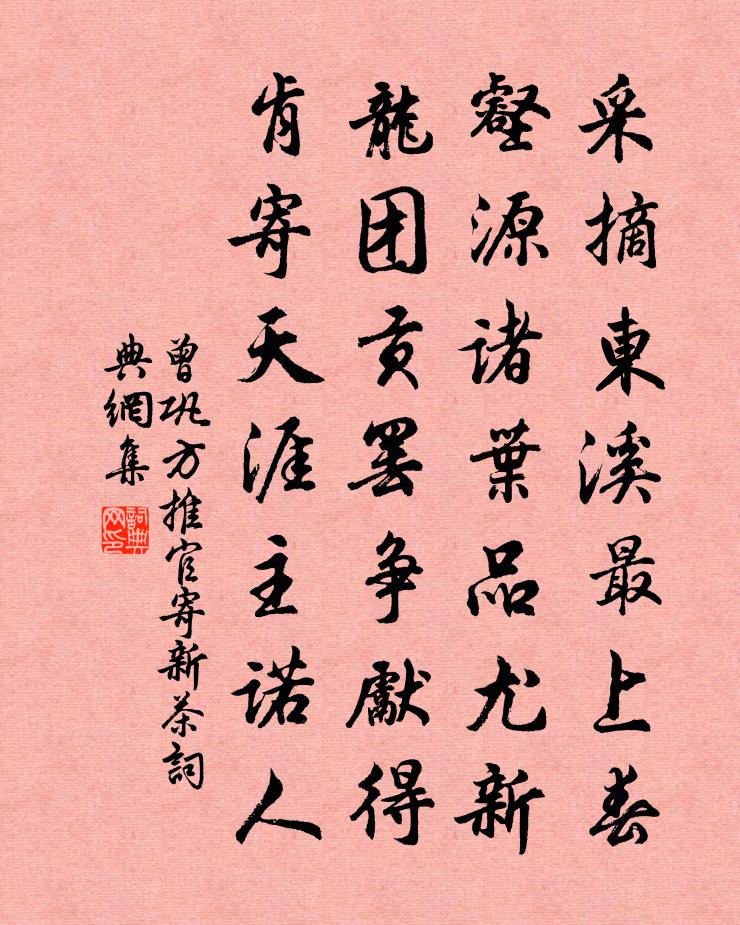 采摘東溪最上春
壑源诸葉品尤新
龍团贡罢争獻得
肯寄天涯主诺人
曾巩方推官寄新茶詞
典網集
詞典网印